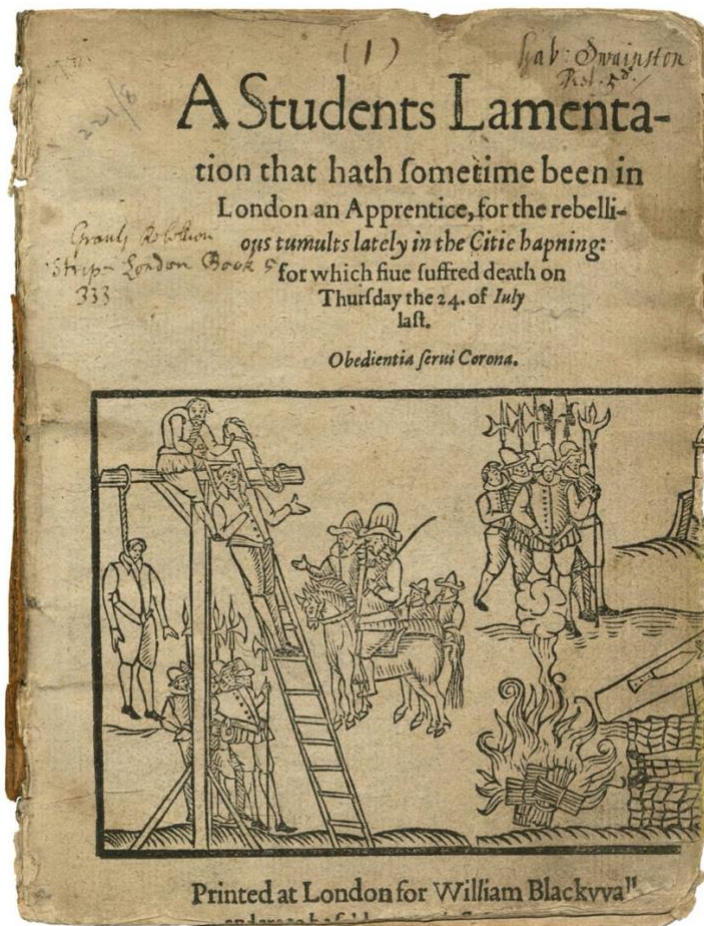 (1)
Gab: Swainston
221/8
A Students Lamenta-
tion that hath ſometime been in
London an Apprentice, for the rebelli-
ous tumults lately in the Citie hapning:
for which fiue ſuffred death on
Thurſday the 24. of Iuly
laſt.
London Book 5
333
Obedientia ſerui Corona.
Printed at London for William Blackvvall